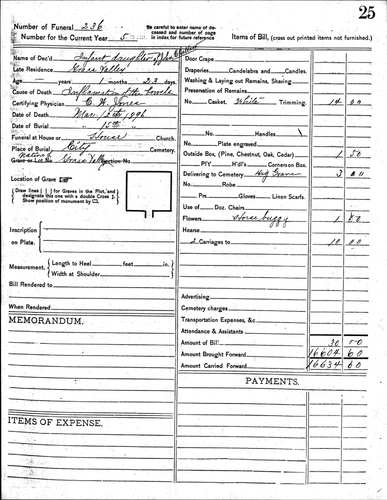 25
Number of Funeral 236
Number for the Current Year 5
Be careful to enter name of deceased and number of page in index for future reference
Items of Bill, (cross out printed items not furnished.)
Name of Dec'd Infant daughter of John
Late Residence Grass Valley
Age years 1 months 23 days
Cause of Death Inflamation of the bowels
Certifying Physician C. W. Jones
Date of Death Mar. 13th 1896
Date of Burial " 15th "
Funeral at House or House Church.
Place of Burial City Cemetery.
Grave or Lot No. Section No.
native of Grass Valley
Location of Grave
Draw lines for Graves in the Plot, and designate this one with a double Cross
Show position of monument by
Inscription on Plate.
Measurement, Length to Heel feet in.
Width at Shoulder
Bill Rendered to
When Rendered
MEMORANDUM.
ITEMS OF EXPENSE.
Door Crape
Draperies, Candelabra and Candles.
Washing & Laying out Remains, Shaving
Preservation of Remains
No. Casket, White Trimming. 14 00
No. Handles
No. Plate engraved
Outside Box, (Pine, Chestnut, Oak, Cedar) 1 50
No. P/Y H'dl's Corners on Box.
Delivering to Cemetery 3 00
No. Robe
Prs. Gloves Linen Scarfs.
Use of Doz. Chairs
Flowers Horse buggy 1 50
Hearse
2 Carriages to 10 00
Advertising
Cemetery charges
Transportation Expenses, &c
Attendance & Assistants
Amount of Bill 30 00
Amount Brought Forward 16604 60
Amount Carried Forward 16634 60
PAYMENTS.